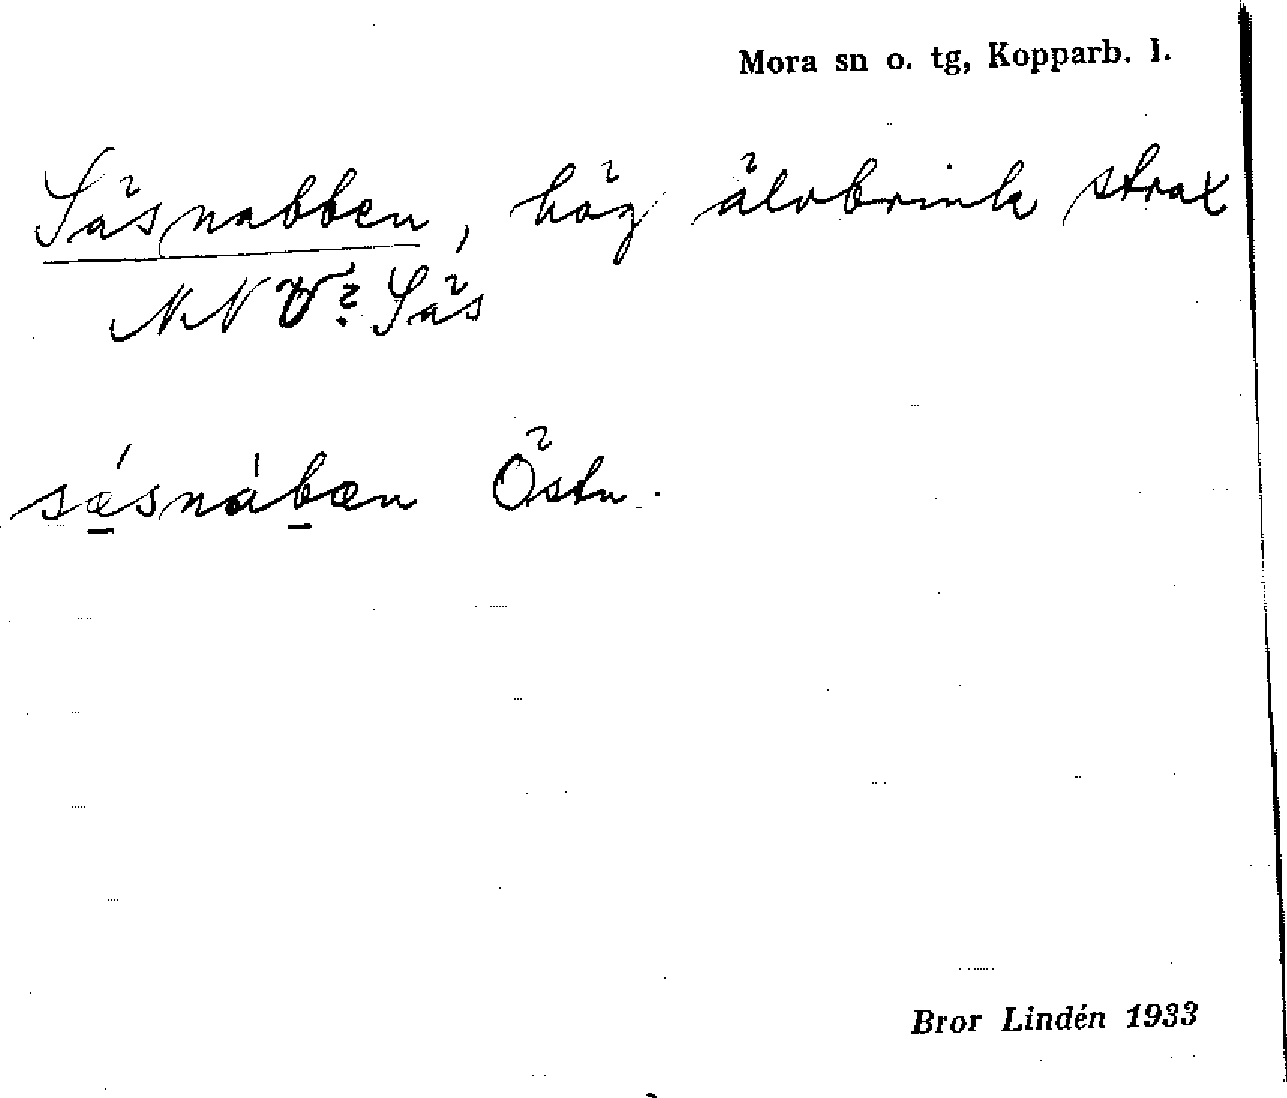 Mora sn o. tg, Kopparb. l.
Säsnabben, hög älvbrink strax
NNV? Säs
sǽsnábæn Östn.
Bror Lindén 1933